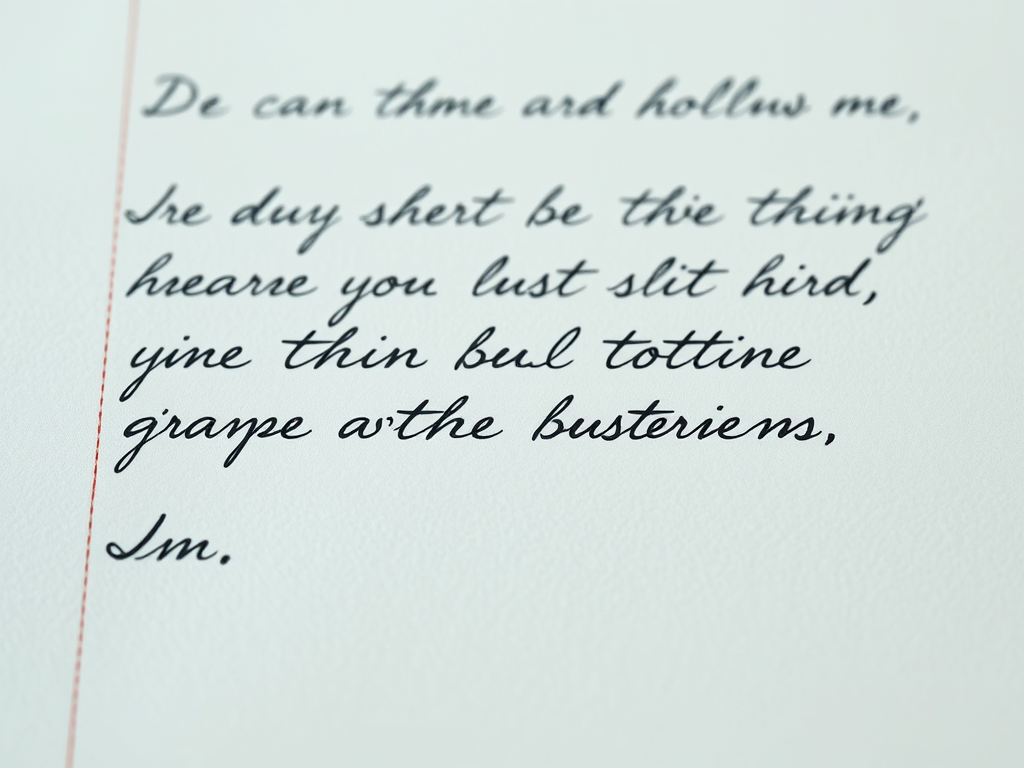 De can thme ard hollus me,
Ire duy shert be thie thiing
hrearre you lust slit hird,
yine thin bul tottine
graype a the busteriens,
Im.